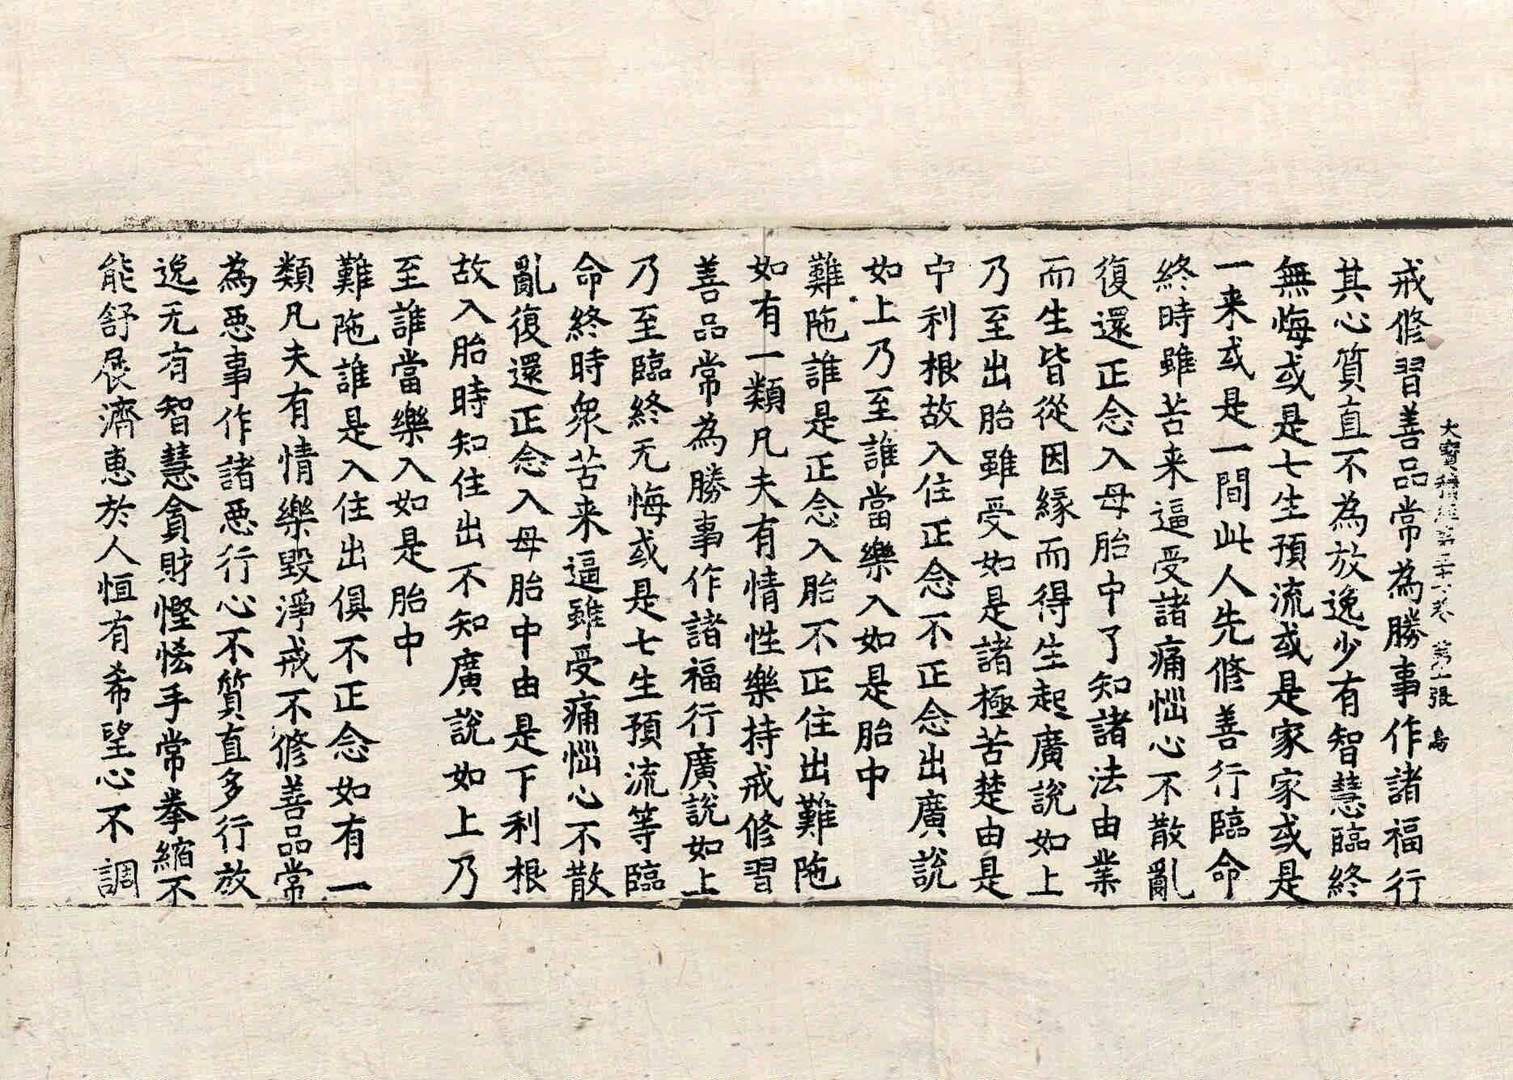 大寶積經第五十六卷 第 張 鳥
戒修習善品常為勝事作諸福行
其心質直不為放逸少有智慧臨終
無悔或是七生預流或是家家或是
一来或是一間此人先修善行臨命
終時雖苦来逼受諸痛惱心不散亂
復還正念入母胎中了知諸法由業
而生皆從因緣而得生起廣說如上
乃至出胎雖受如是諸極苦楚由是
中利根故入住正念不正念出廣說
如上乃至誰當樂入如是胎中
難陁誰是正念入胎不正住出難陁
如有一類凡夫有情性樂持戒修習
善品常為勝事作諸福行廣說如上
乃至臨終无悔或是七生預流等臨
命終時衆苦来逼雖受痛惱心不散
亂復還正念入母胎中由是下利根
故入胎時知住出不知廣說如上乃
至誰當樂入如是胎中
難陁誰是入住出俱不正念如有一
類凡夫有情樂毀淨戒不修善品常
為惡事作諸惡行心不質直多行放
逸无有智慧貪財慳恡手常拳縮不
能舒展濟惠於人恒有希望心不調